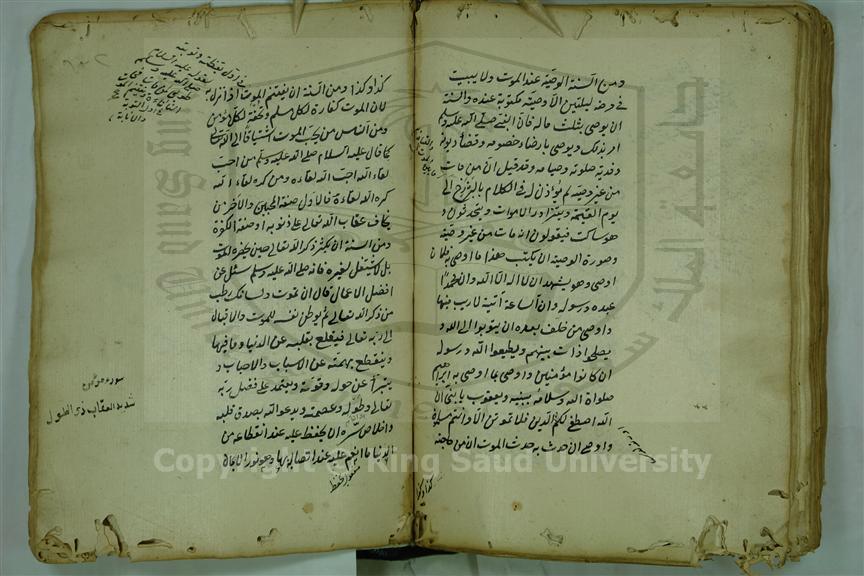 ومن السنة الوصية عند الموت ولا يبيت
في مرضه ليلتين الا وصيته مكتوبة عنده والسنة
ان يوصى بثلث ماله فان النبي صلى الله عليه وسلم
امر بذلك ويوصى بارضاء خصومه وقضاء ديونه
وفدية صلوته وصيامه وقد قيل ان من مات
من غير وصية لم يؤذن له في الكلام بالبرزخ الى
يوم القيمة ويتزاور الاموات ويتحدثون و
هو ساكت فيقولون انه مات من غير وصية
وصورة الوصية ان يكتب هذا ما اوصى فلان
اوصى وهو يشهد ان لا اله الا الله وان محمدا
عبده ورسوله وان الساعة آتية لا ريب فيها
واوصى من خلف بعده ان يتقوا الله و
يصلحوا ذات بينهم ويطيعوا الله ورسوله
ان كانوا مؤمنين واوصى بما اوصى به ابراهيم
صلواة الله وسلامه بنيه ويعقوب يا بني ان
الله اصطفى لكم الدين فلا تموتن الا وانتم مسلمون
واوصى ان حدث به حدث الموت ان من حاجته
كذا وكذا
كذا وكذا ومن السنة ان يغتنم الموت اذا نزل به
لان الموت كفارة لكل مسلم وتحفة لكل مؤمن
ومن الناس من يحب الموت اشتياقا الى الله تعالى
كما قال عليه السلام صلى الله عليه وسلم من احب
لقاء الله احب الله لقاءه ومن كره لقاء الله
كره الله لقاءه فالاول صفة المحبين والآخر من
يخاف عقاب الله تعالى على ذنوبه او صفة الكفرة
ومن السنة ان يكثر ذكر الله تعالى حين يحضره الموت
بل لا يشتغل بغيره فانه صلى الله عليه وسلم سئل عن
افضل الاعمال قال ان تموت ولسانك رطب
من ذكر الله تعالى ثم يوطن نفسه للموت والاقبال
الى ربه تعالى فيقلع بقلبه عن الدنيا وما فيها
وينقطع بهمته عن الاسباب والاحباب و
يتبرأ عن حوله وقوته ويعتمد على فضل ربه
تعالى وطوله وعصمته ويدعو الله بصدق قلبه
واخلاص سره ان يحفظ عليه عند انقطاعه من
الدنيا ما انعم عليه عند اتصاله بها وهو نور الايمان
شديد العقاب ذى الطول
Copyright © King Saud University